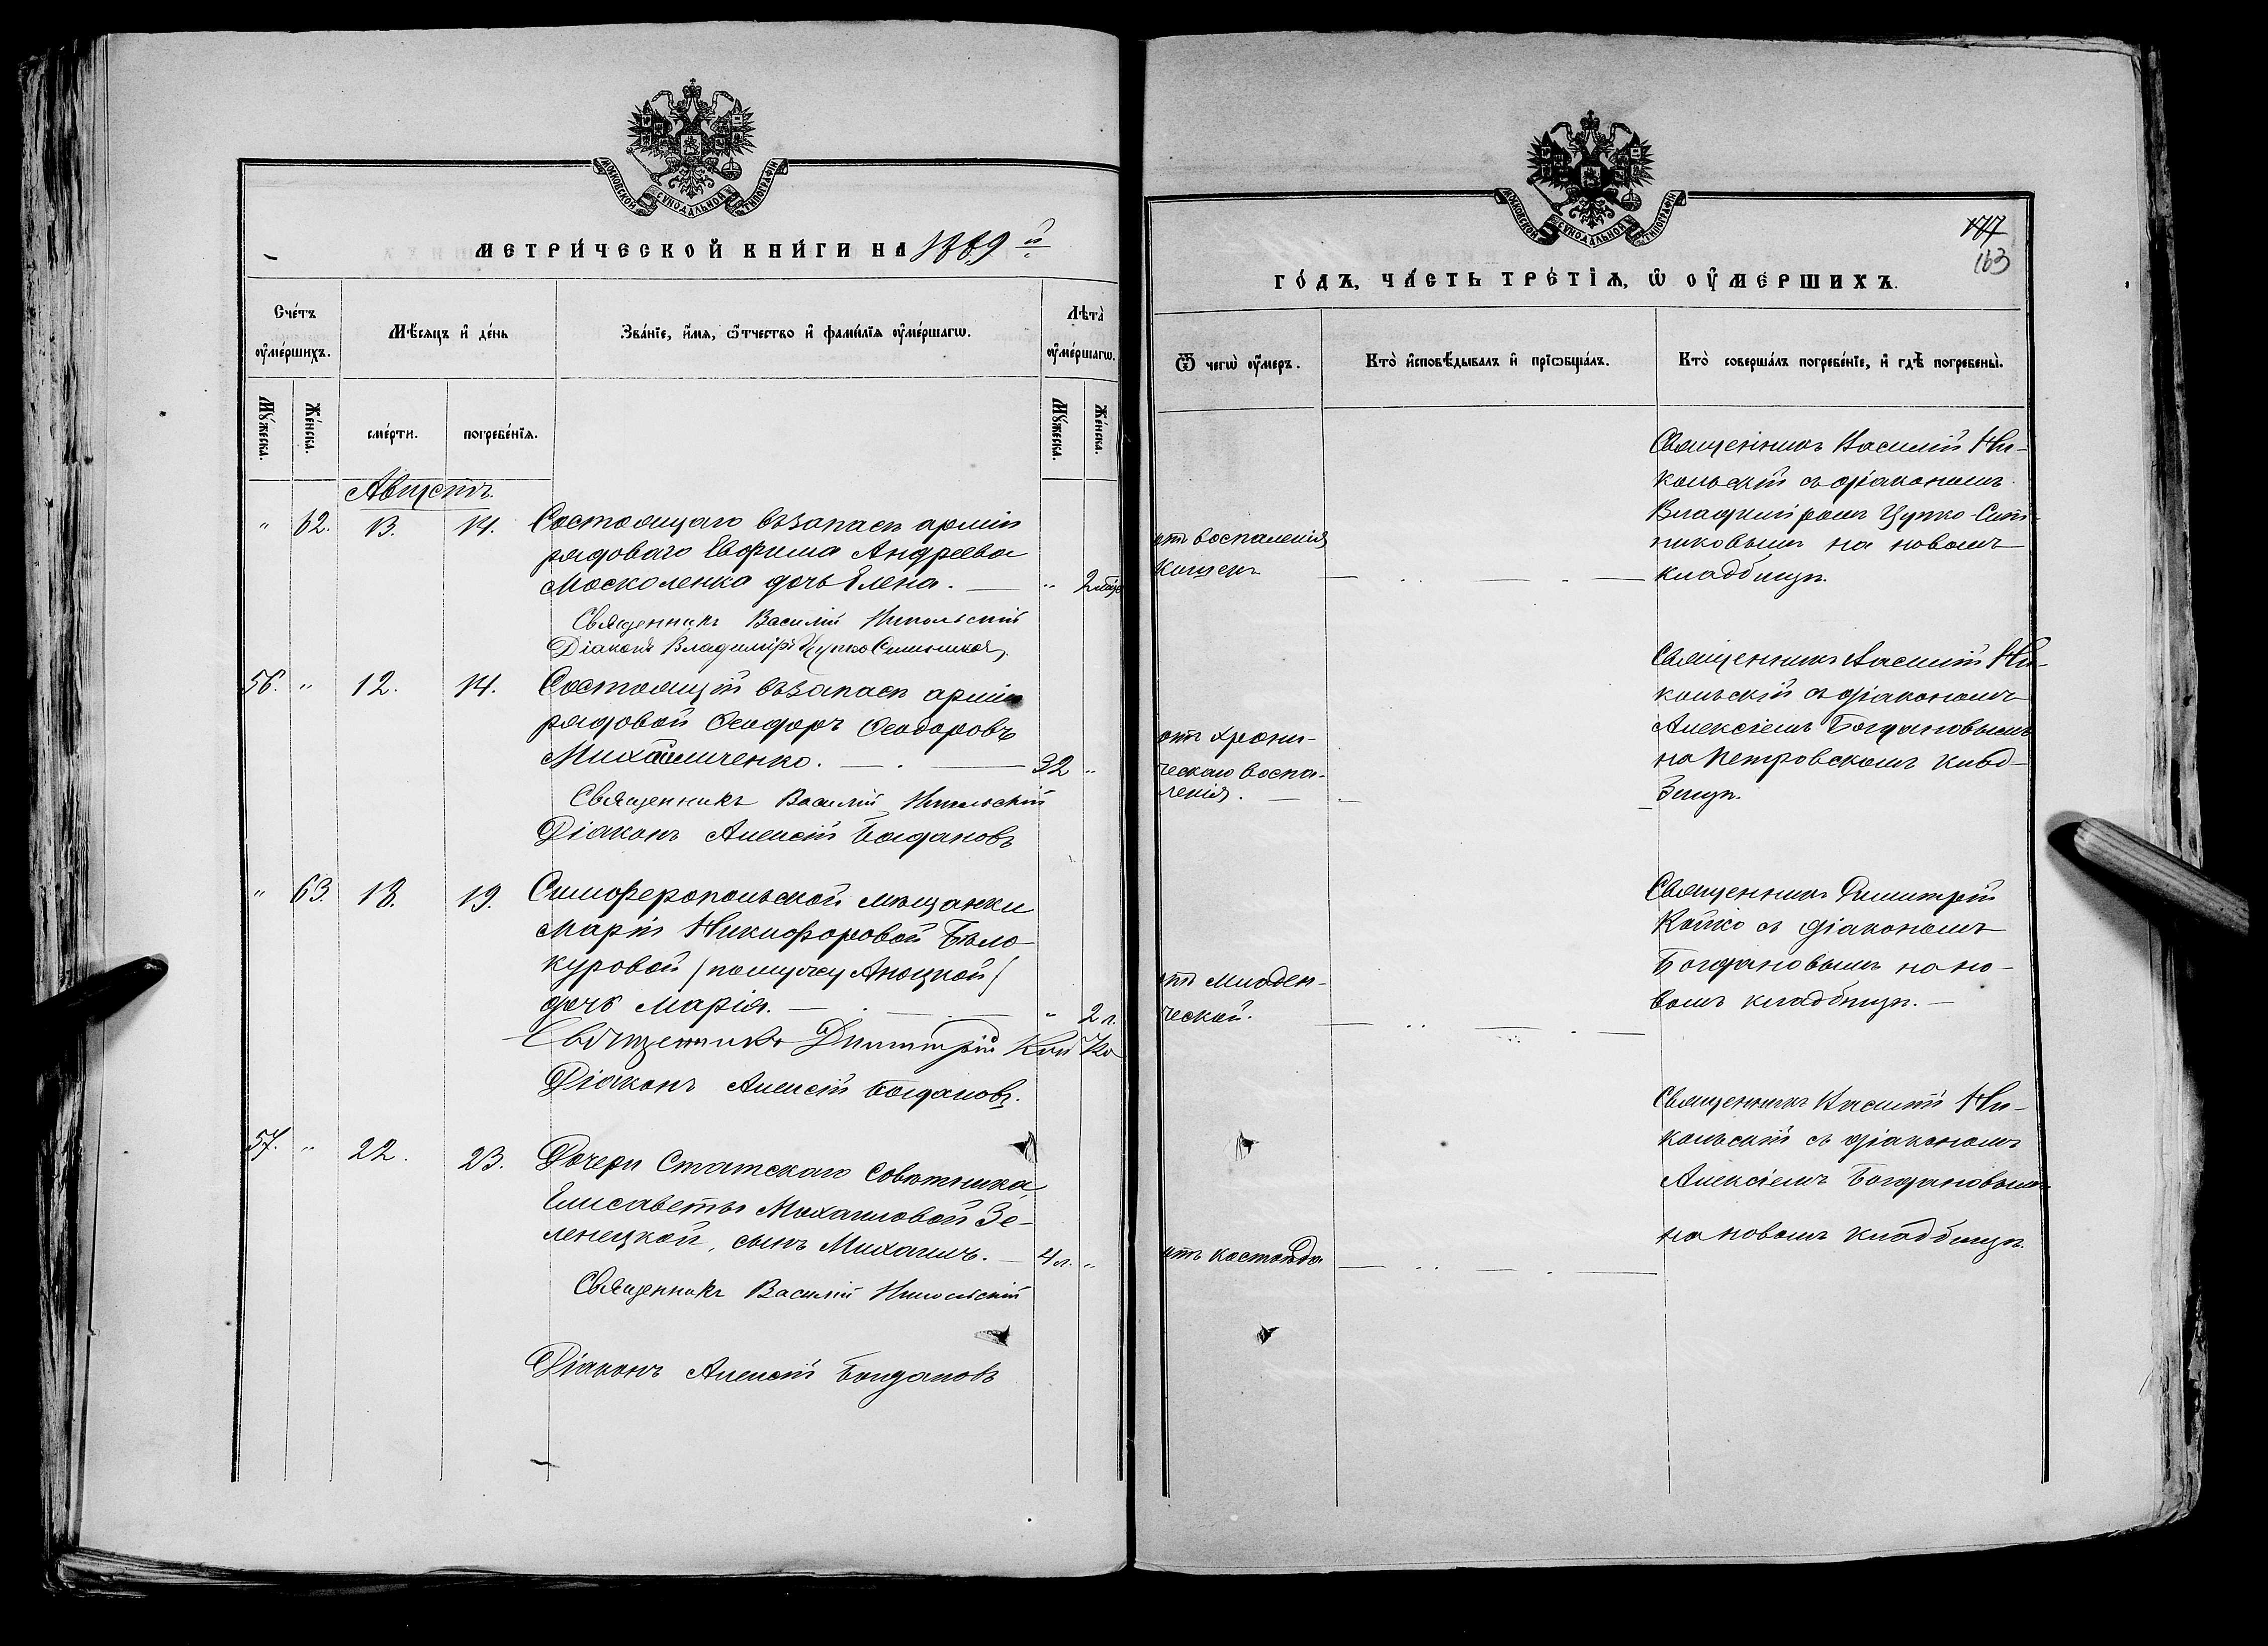 МОСКОВСКОЙ СУНОДАЛЬНОЙ ТИПОГРАФІИ
МЕТРИ́ЧЕСКОЙ КНИ́ГИ НА 1889 й
Сче́тъ ᲂу҆ме́ршихъ.
Мѣ́сяцъ и҆ де́нь
Зва́нїе, и҆́мя, ѻ҆́тчество и҆ фами́лїя ᲂу҆ме́ршагѡ.
Лѣта̀ ᲂу҆ме́ршагѡ.
Мꙋ́жеска.
Же́нска.
сме́рти.
погребе́нїѧ.
Мꙋ́жеска.
Же́нска.
Августъ.
" 62. 13. 14. Состоящаго въ запасѣ арміи
рядоваго Евфима Андреева
Москаленка дочь Елена. — " 2 мѣс
Священникъ Василій Никольскій
Діаконъ Владиміръ Цупко-Ситниковъ.
56. " 12. 14. Состоящій въ запасѣ арміи
рядовой Ѳеодоръ Ѳеодоровъ
Михайличенко. — 32 "
Священникъ Василій Никольскій
Діаконъ Алексій Богдановъ
" 63. 18. 19. Симферопольской мѣщанки
Маріи Никифоровой Бѣло-
куровой (по мужу Аноцкой)
дочь Марія. — " 2 л.
Священникъ Димитрій Койко
Діаконъ Алексій Богдановъ.
57. " 22. 23. Дочери Статскаго Совѣтника
Елисаветы Михаиловой Зе-
ленецкой, сынъ Михаилъ. — 4 л. "
Священникъ Василій Никольскій
Діаконъ Алексій Богдановъ
МОСКОВСКОЙ СУНОДАЛЬНОЙ ТИПОГРАФІИ
177
163
ГО́ДЪ, ЧА́СТЬ ТРЕ́ТІѦ, Ѡ ОУ҆МЕ́РШИХЪ.
Ѿ чегѡ̀ ᲂу҆́меръ.
Кто̀ и҆сповѣ́дывалъ и҆ прїѡбща́лъ.
Кто̀ соверша́лъ погребе́нїе, и҆ гдѣ̀ погребены̀.
Священникъ Василій Ни-
кольскій съ діакономъ
Владиміромъ Цупко-Сит-
никовымъ на новомъ
кладбищѣ.
отъ воспаленія
кишекъ
Священникъ Василій Ни-
кольскій съ діакономъ
Алексіемъ Богдановымъ
на Петровскомъ клад-
бищѣ.
отъ хрони-
ческаго воспа-
ленія.
Священникъ Димитрій
Койко съ діакономъ
Богдановымъ на но-
вомъ кладбищѣ. —
отъ младен-
ческой.
Священникъ Василій Ни-
кольскій съ діакономъ
Алексіемъ Богдановымъ
на новомъ кладбищѣ.
отъ костоѣда